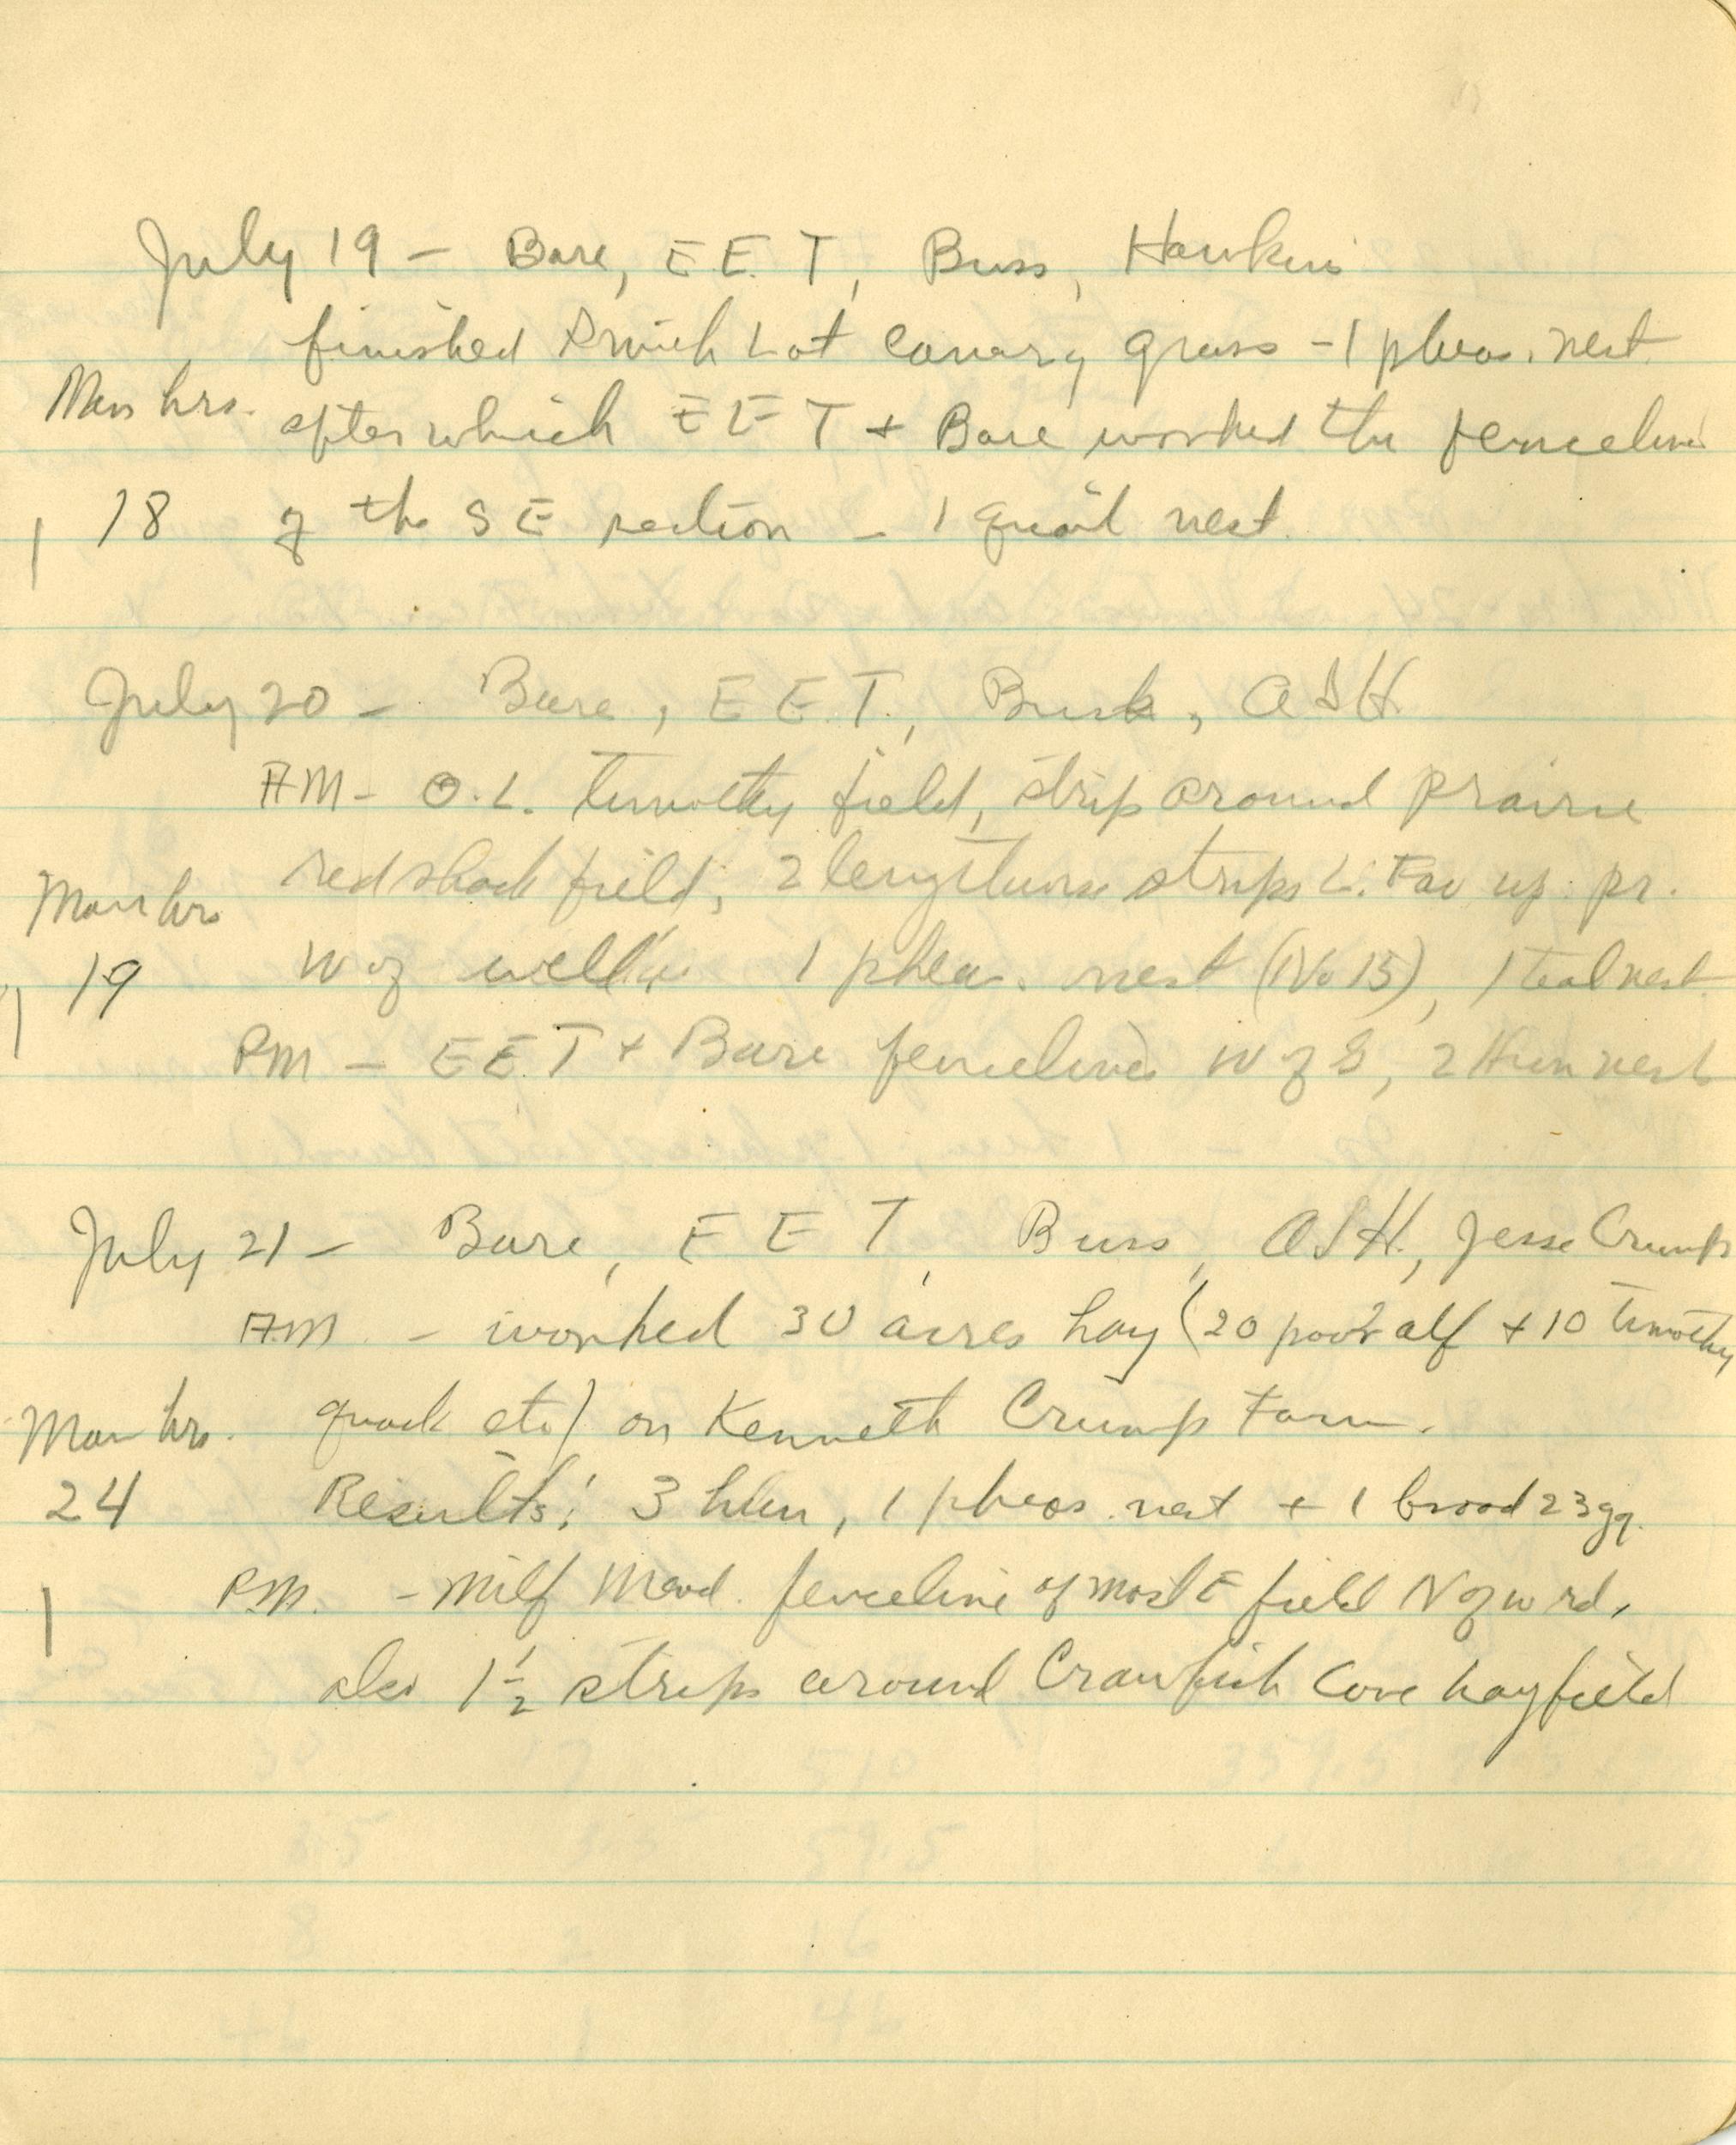 July 19 - Bare, E E. T, Buss, Hawkins
finished Lot canary grass - 1 pheas. nest
Man hrs. after which E E T + Bare worked the fencelines
18 of the SE section - 1 quail nest.
July 20 - Bare, E E. T., Busk, ASH
AM - O.L. timothy field, strip around prairie
red shack field, 2 lengthwise strips up. pr.
Man hrs
19 W of 1 pheas. nest (No 15), 1 teal nest.
PM - E E. T + Bare fencelines W of S, 2 Hun nest
July 21 - Bare, E E T, Buss, ASH., Jesse Crump
AM - worked 30 acres hay (20 poor alf + 10 timothy
Man hrs. quack etc) on Kenneth Crump Farm.
24 Results: 3 hun, 1 pheas. nest + 1 brood
P.M. - Milf Mead. fenceline of most E field N of W rd,
also 1 1/2 strips around Crawfish Cove hayfield